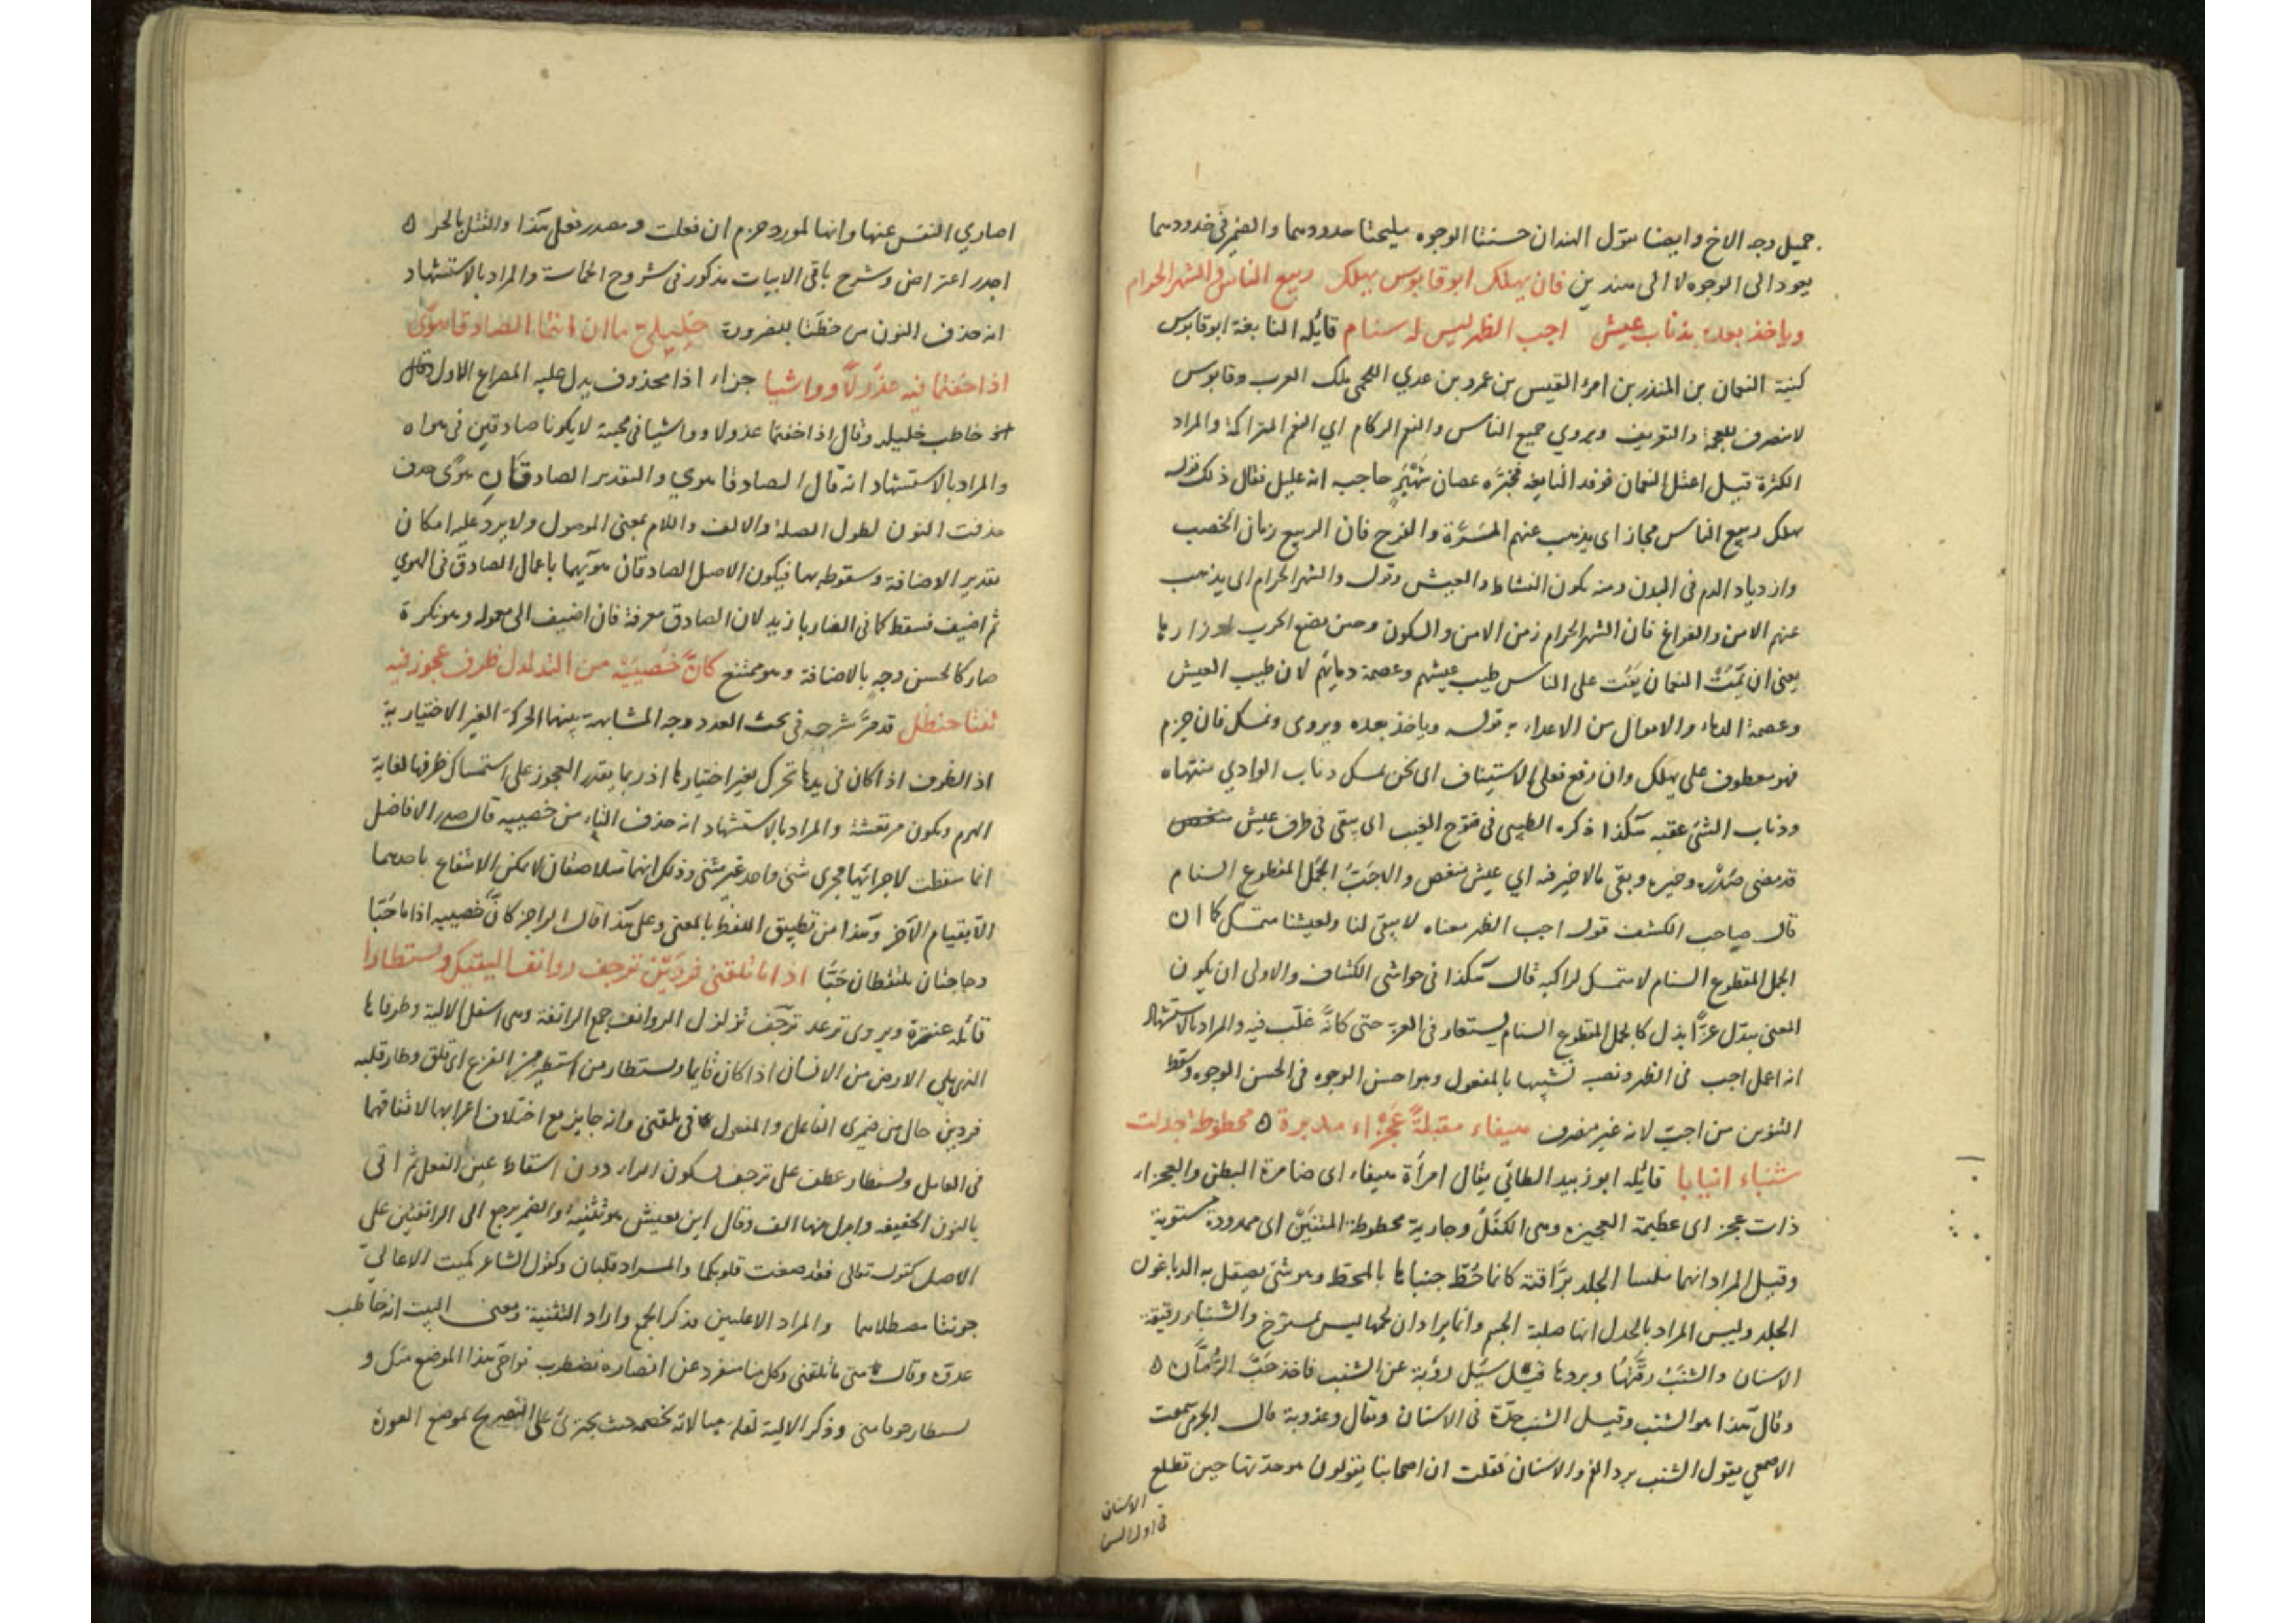 جميل وجه الاخ وايضا تقول الهندان حسنتا الوجوه مليحتا خدودهما والضمير في خدودهما
يعود الى الوجوه لا الى هندين فان يهلك ابو قابوس يهلك ربيع الناس والشهر الحرام
وياخذ بعده بذناب عيش اجب الظهر ليس له سنام قائله النابغة ابو قابوس
كنية النعمان بن المنذر بن امرء القيس بن عمرو بن عدي اللخمي ملك العرب وقابوس
لا ينصرف للعجمة والتعريف ويروي جميع الناس والنعم الركام اي النعم المتراكمة والمراد
الكثرة قيل اعتل النعمان فوفد النابغة فخبره عصام بن شهبر حاجبه انه عليل فقال ذلك قوله
يهلك ربيع الناس مجاز اى يذهب عنهم المسرّة والفرح فان الربيع زمان الخصب
وازدياد الدم في البدن ومنه يكون النشاط والعيش وقوله والشهر الحرام اى يذهب
عنهم الامن والفراغ فان الشهر الحرام زمن الامن والسكون وحين يضع الحرب اوزارها
يعنى ان يمت النعمان يمت على الناس طيب عيشهم وعصمة دمائهم لان طيب العيش
وعصمة الدماء والاموال من الاعداء به قوله وياخذ بعده ويروى ونمسك فان جزم
فهو معطوف على يهلك وان رفع فعلى الاستيناف اى نحن نمسك وذناب الوادي منتهاه
وذناب الشئ عقبه هكذا ذكره الطيبى في فتوح الغيب اى يبقى في طرف عيش
قد مضى صدره وخيره وبقى ما لا خير فيه اي عيش منغص والاجب الجمل المقطوع السنام
قال صاحب الكشف قوله اجب الظهر معناه لا يبقى لنا ولعيشنا متمسك كما ان
الجمل المقطوع السنام لا متمسك لراكبه قال هكذا في حواشى الكشاف والاولى ان يكون
المعنى يبدل عزا بذل كالجمل المقطوع السنام يستعار في العز حتى كانه غلب فيه والمراد بالاستشهاد
انه اعمل اجب في الظهر ونصبه تشبيها بالمفعول وهو احسن الوجوه في الحسن الوجوه وسقط
التنوين من اجب لانه غير منصرف هيفاء مقبلة عجزاء مدبرة ه محطوطة جدلت
شنباء انيابا قائله ابو زبيد الطائي يقال امرأة هيفاء اى ضامرة البطن والعجزاء
ذات عجز اى عظيمة العجيزة وهى الكفل وجارية محطوطة المتنين اى ممدودة مستوية
وقيل المراد انهما ملسا الجلد براقته كانما حُطّ جنباها بالمحط وهو شئ يصقل به الدباغون
الجلد وليس المراد بالجدل انها صلبة الجسم وانما يراد ان لحمها ليس بمسترخ والشنباء رقيقة
الاسنان والشنب رقتها وبردها قيل سئل رؤبة عن الشنب فاخذ حب الرمان ه
وقال هذا هو الشنب وقيل الشنب حدة في الاسنان ويقال وعذوبة قال الجرمى سمعت
الاصمعي يقول الشنب برد الفم والاسنان فقلت ان اصحابنا يقولون هو حدتها حين تطلع
الاسنان
في اول السن
اصاري النفس عنها وانها لمورد حزم ان فعلت ومصدر فعل هذا والفتل بالحر ه
اجدر اعتراض وشرح باقى الابيات مذكور في شروح الحماسة والمراد بالاستشهاد
انه حذف النون من خطتا للضرورة خليلي ما ان انتما الصادقا هوى
اذا خفتما فيه عذولا وواشيا جزاء اذا محذوف يدل عليه المصراع الاول
خاطب خليليه وقال اذا خفتما عذولا وواشيا في محبته لا يكونا صادقين في هواه
والمراد بالاستشهاد انه قال الصادقا هوي والتقدير الصادقان هوى
حذفت النون لطول الصلة والالف واللام بمعنى الموصول ولا يرد عليه امكان
تقدير الاضافة وسقوطه بها فيكون الاصل الصادقان هويهما باعمال الصادق في الهوي
ثم اضيف فسقط كما في الضاربا زيد لان الصادق معرفة فان اضيف الى معموله وهو نكرة
صار كالحسن وجه بالاضافة وهو ممتنع كانّ خُصييه من التدلدل ظرف عجوز فيه
ثنتا حنظل قد مر شرحه في بحث العدد وجه المشابهة بينهما الحركة الغير الاختيارية
اذ الظرف اذا كان في يدها تحرك بغير اختيارها اذ ربما يقدر العجوز على استمساك ظرفها لغاية
الهرم ويكون مرتعشة والمراد بالاستشهاد انه حذف التاء من خصييه قال صدر الافاضل
انما سقطت لاجرائهما مجرى شئ واحد غير مثنى وذلك انهما متلاصقان لا يمكن الانتفاع باحدهما
الا بقيام الآخر وهذا من تطبيق اللفظ بالمعنى وعلى هذا قال الراجز كانّ خصييه اذا ما جبّا
دجاجتان ملتقطان حبّا اذا ما تلقنى فردين ترجف روانف اليتيك وتستطارا
قائله عنترة ويروى ترعد ترجف تزلزل الروانف جمع الرانفة وهى اسفل الالية وطرفها
الذي يلي الارض من الانسان اذا كان قايما وتستطار من استطير من الفزع اى قلق وطار قلبه
فردين حال من ضميرى الفاعل والمفعول في تلقنى وانه جايز مع اختلاف اعرابهما لاتفاقهما
في العامل وتستطار عطف على ترجف بسكون الراء دون اسقاط عين الفعل ثم اتى
بالنون الخفيفة وابدل منها الف وقال ابن يعيش هو تثنية والضمير يرجع الى الرانفتين على
الاصل كقوله تعالى فقد صغت قلوبكما والمراد قلبان وكقول الشاعر كميت الاعالي
جونتا مصطلاهما والمراد الاعليين فذكر الجمع واراد التثنية ومعنى البيت انه خاطب
عدوه وقال متى ما تلقنى وكل منا منفرد عن انصاره تضطرب نواحى هذا الموضع منك و
تستطار خوفا منى وذكر الالية لانه على التصريح بموضع العورة